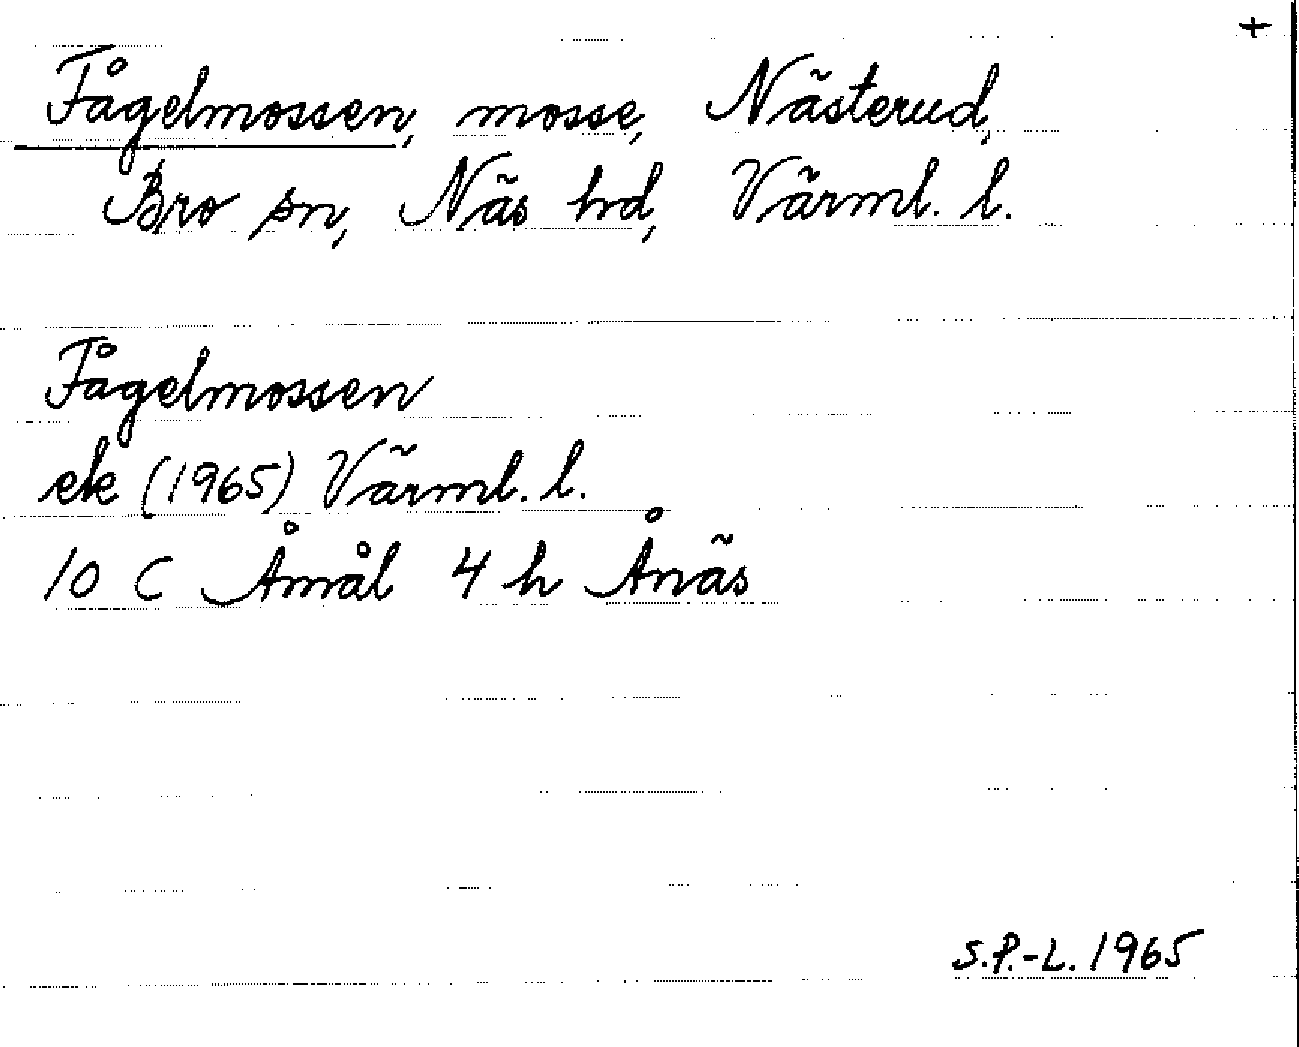 +
Fågelmossen, mosse, Nästerud,
Bro sn, Näs hd, Värml. l.
Fågelmossen
ek (1965) Värml. l.
10 C Åmål 4 h Ånäs
S.P.-L. 1965